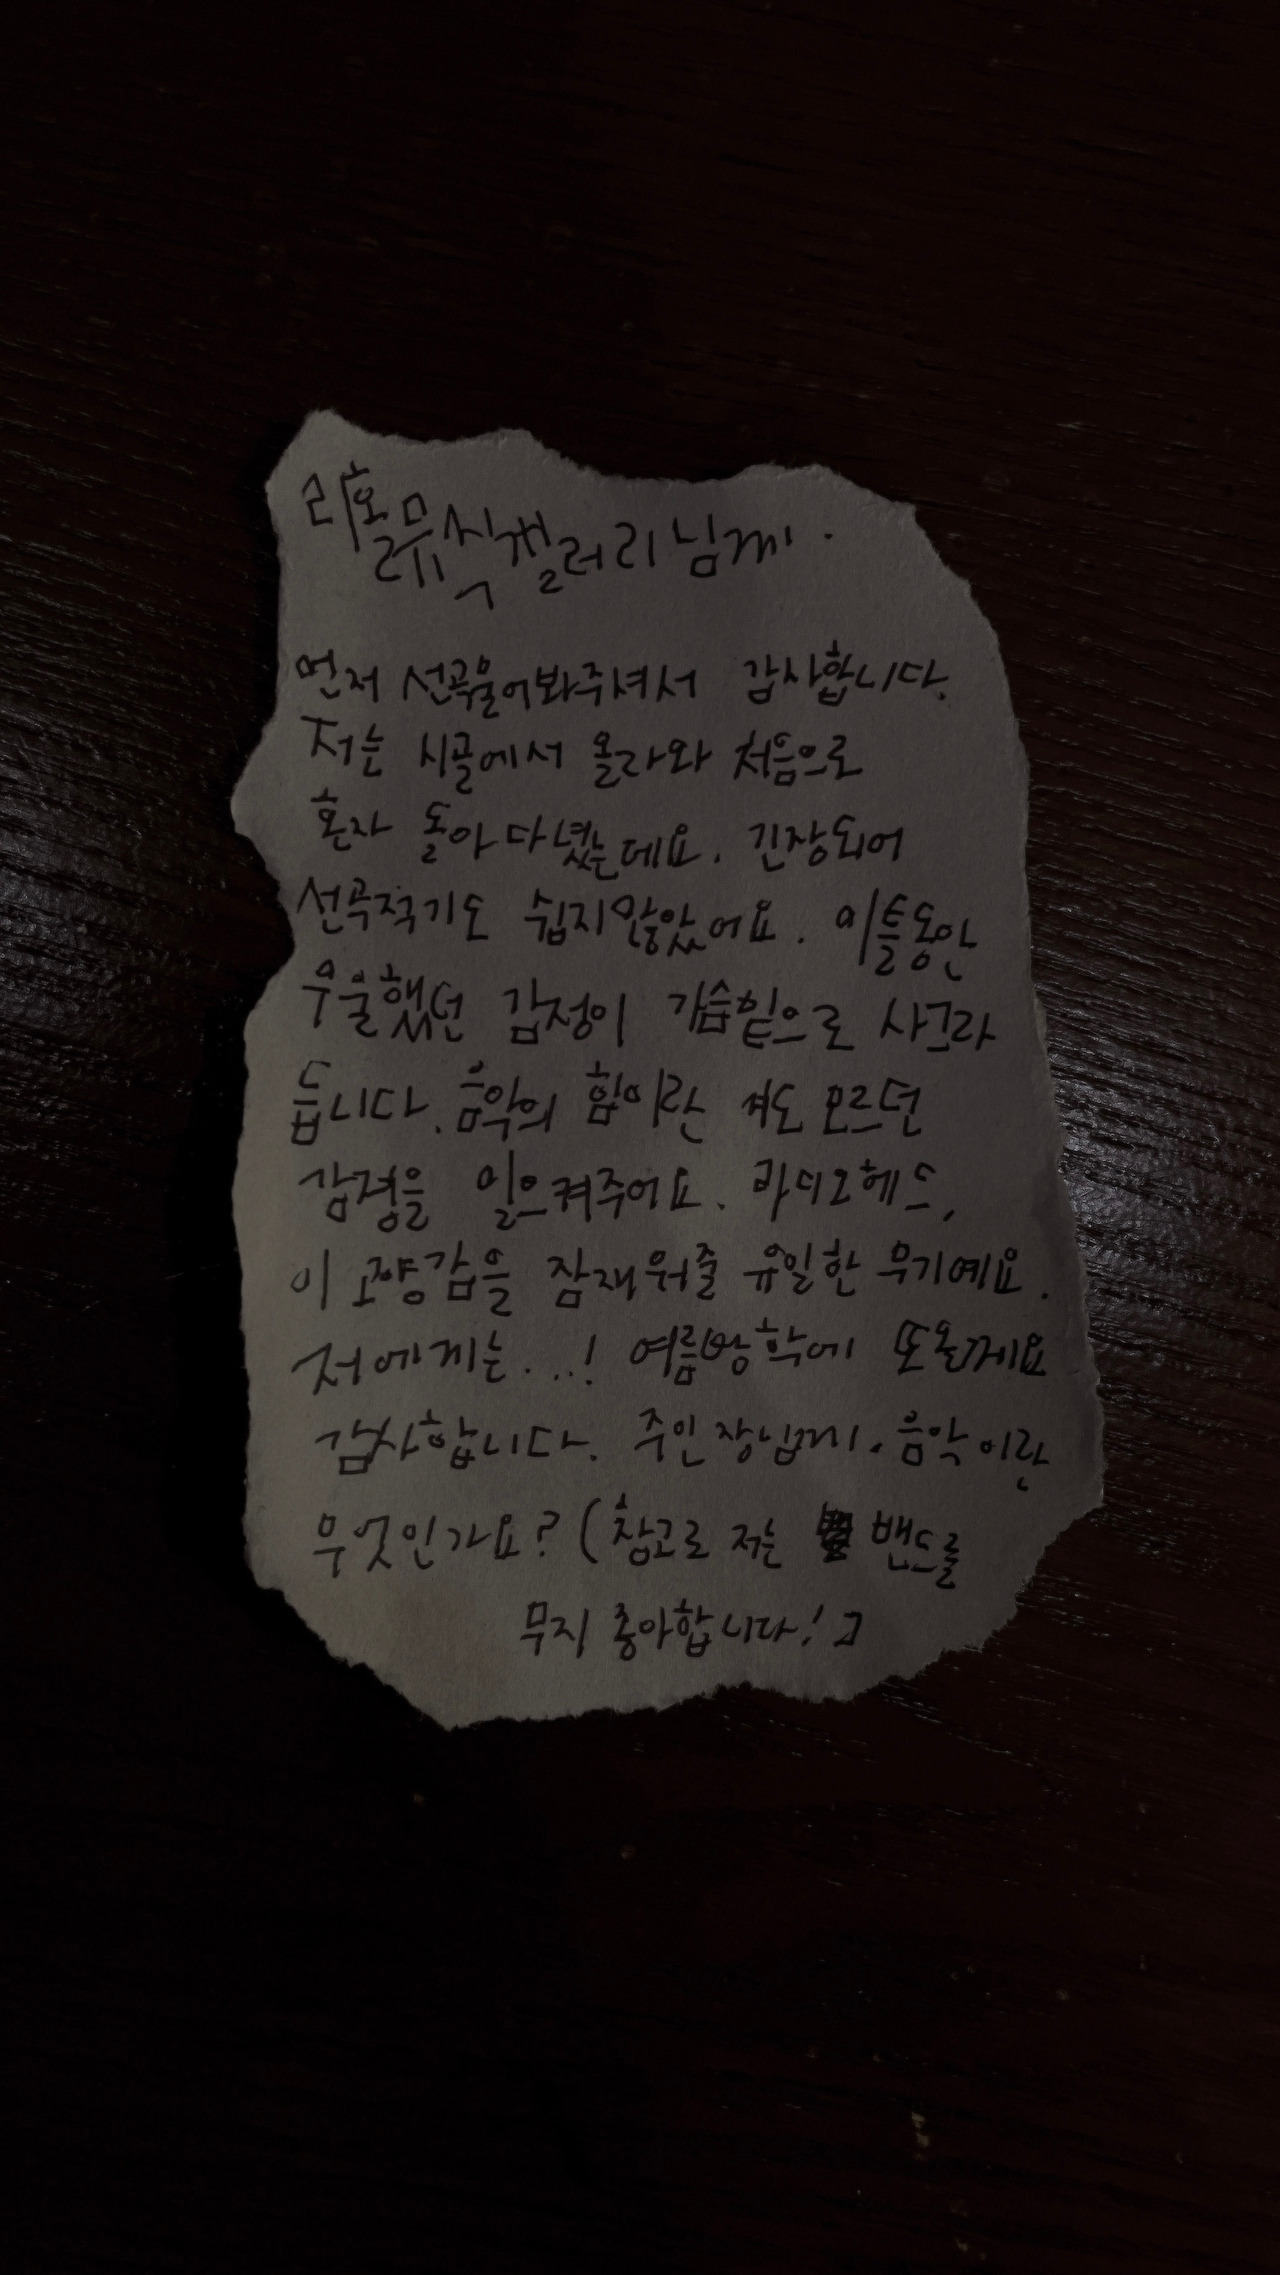 리홀뮤직갤러리님께.
먼저 선곡물어봐주셔서 감사합니다.
저는 시골에서 올라와 처음으로
혼자 돌아다녔는데요. 긴장되어
선곡적기도 쉽지않았어요. 이틀동안
우울했던 감정이 가슴밑으로 사그라
듭니다. 음악의 힘이란 저도 모르던
감정을 일으켜주어요. 라디오헤드,
이 고양감을 잠재워줄 유일한 무기예요.
저에게는...! 여름방학에 또올게요
감사합니다. 주인장님께. 음악이란
무엇인가요? (참고로 저는 밴드를
무지 좋아합니다!